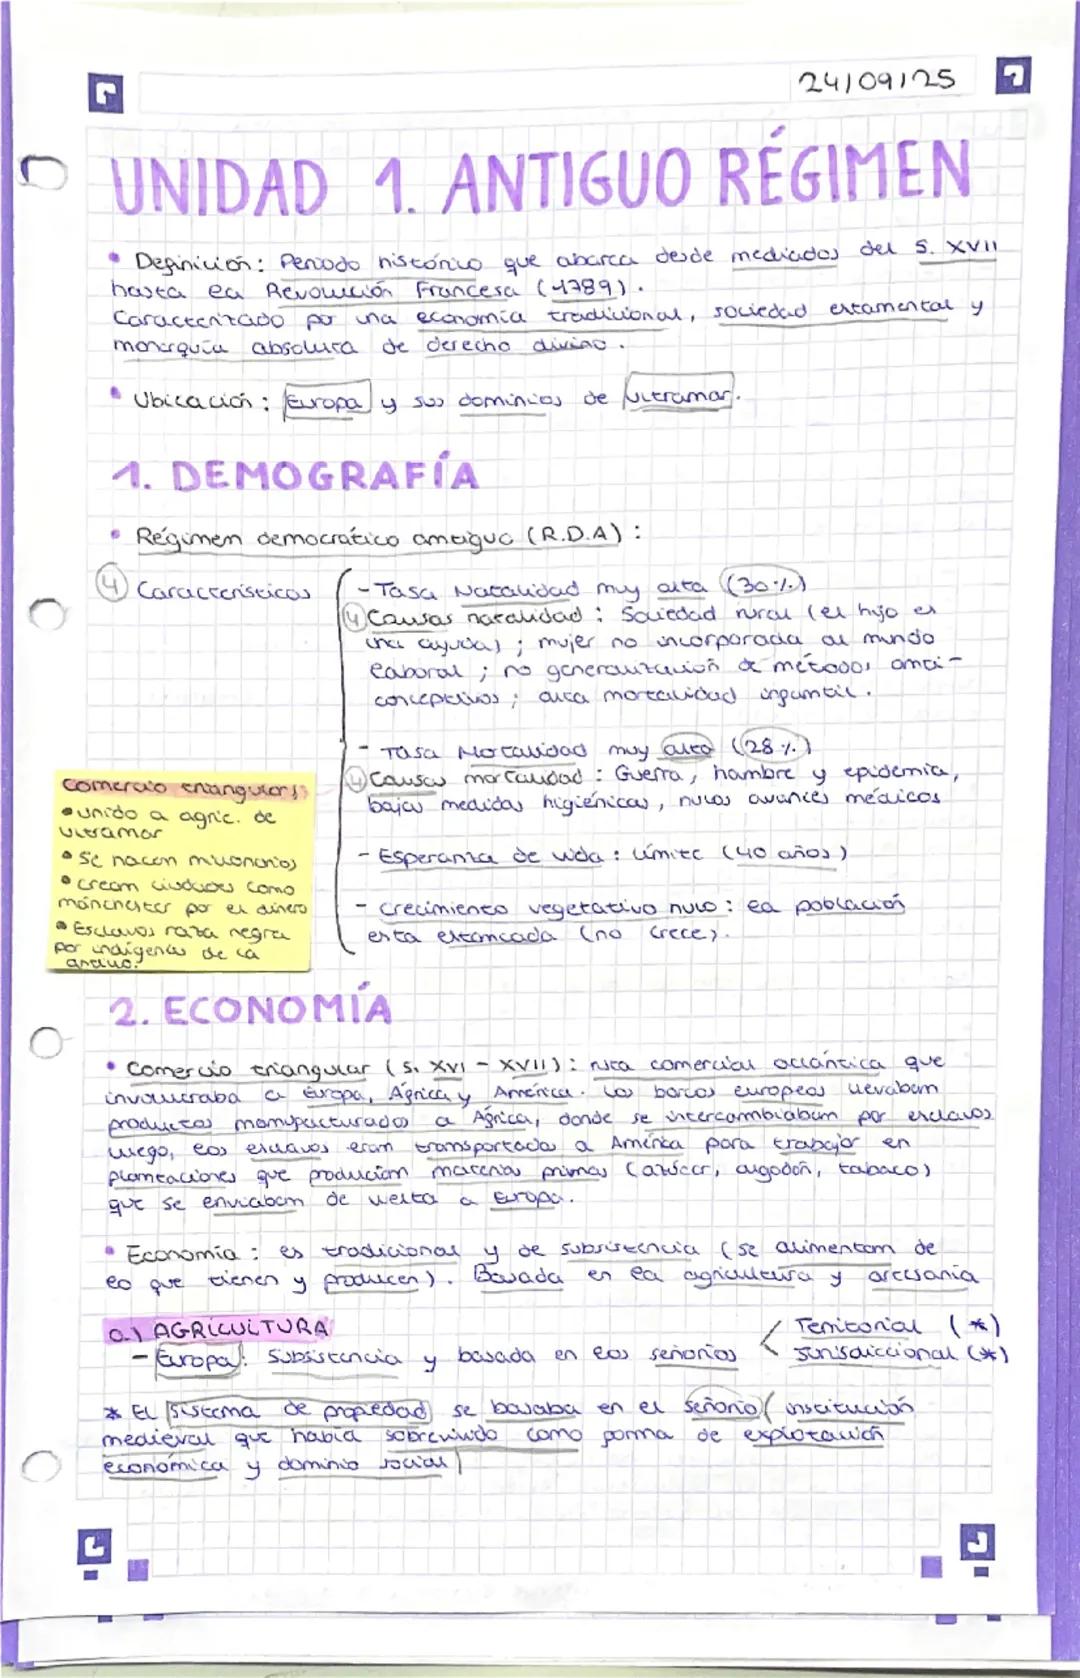 24/09/25
UNIDAD 1. ANTIGUO RÉGIMEN
• Definición: Periodo histórico que abarca desde mediados del S. XVII
hasta la Revolución Francesa (1789).
Caracterizado por una economía tradicional, sociedad estamental y
monarquía absoluta de derecho divino.
• Ubicación: Europa y sus dominios de ultramar.
1. DEMOGRAFÍA
• Régimen democrático antiguo (R.D.A):
4 Características
- Tasa Natalidad muy alta (30%)
4 Causas natalidad: Sociedad rural (el hijo es
una ayuda); mujer no incorporada al mundo
laboral; no generalización de métodos anti-
conceptivos; alta mortalidad infantil.
- Tasa Mortalidad muy alta (28%)
4 Causas mortalidad: Guerra, hambre y epidemia,
bajas medidas higiénicas, nulos avances médicos
- Esperanza de vida: límite (40 años)
- Crecimiento vegetativo nulo: la población
esta estancada (no crece).
Comercio triangular
• unido a agric. de
ultramar
• Se hacen millonarios
• Crean ciudades como
mánchester por el dinero
• Esclavos raza negra
por indígenas de la
2. ECONOMÍA
• Comercio triangular (S. XVI - XVII): ruta comercial atlántica que
involucraba a Europa, África y América. Los barcos europeos llevaban
productos manufacturados a África, donde se intercambiaban por esclavos
luego, los esclavos eran transportados a América para trabajar en
plantaciones que producían materias primas (azúcar, algodón, tabaco)
que se enviaban de vuelta a Europa.
• Economía: es tradicional y de subsistencia (se alimentan de
lo que tienen y producen). Basada en la agricultura y artesanía
a.) AGRICULTURA
- Europa: Subsistencia y basada en los señoríos
Territorial (*)
Jurisdiccional (*)
* El sistema de propiedad se basaba en el señorío (institución
medieval que había sobrevivido como forma de explotación
económica y dominio social)